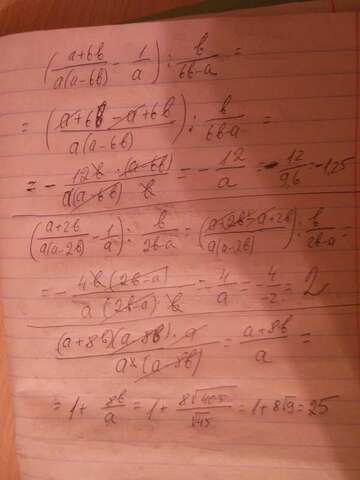 (a+6b/a(a-6b) - 1/a) : b/6b-a =
= (a+6b-a+6b/a(a-6b)) : b/6b-a =
= - 12b·(a-6b)/a(a-6b)·b = - 12/a = - 12/9,6 = -1,25
(a+2b/a(a-2b) - 1/a) : b/2b-a = (a+2b-a+2b/a(a-2b)) : b/2b-a =
= - 4b(2b-a)/a(2b-a)·b = - 4/a = - 4/-2 = 2
(a+8b)(a-8b)·a/a²(a-8b) = a+8b/a =
= 1+ 8b/a = 1+ 8√405/√45 = 1+8√9 = 25